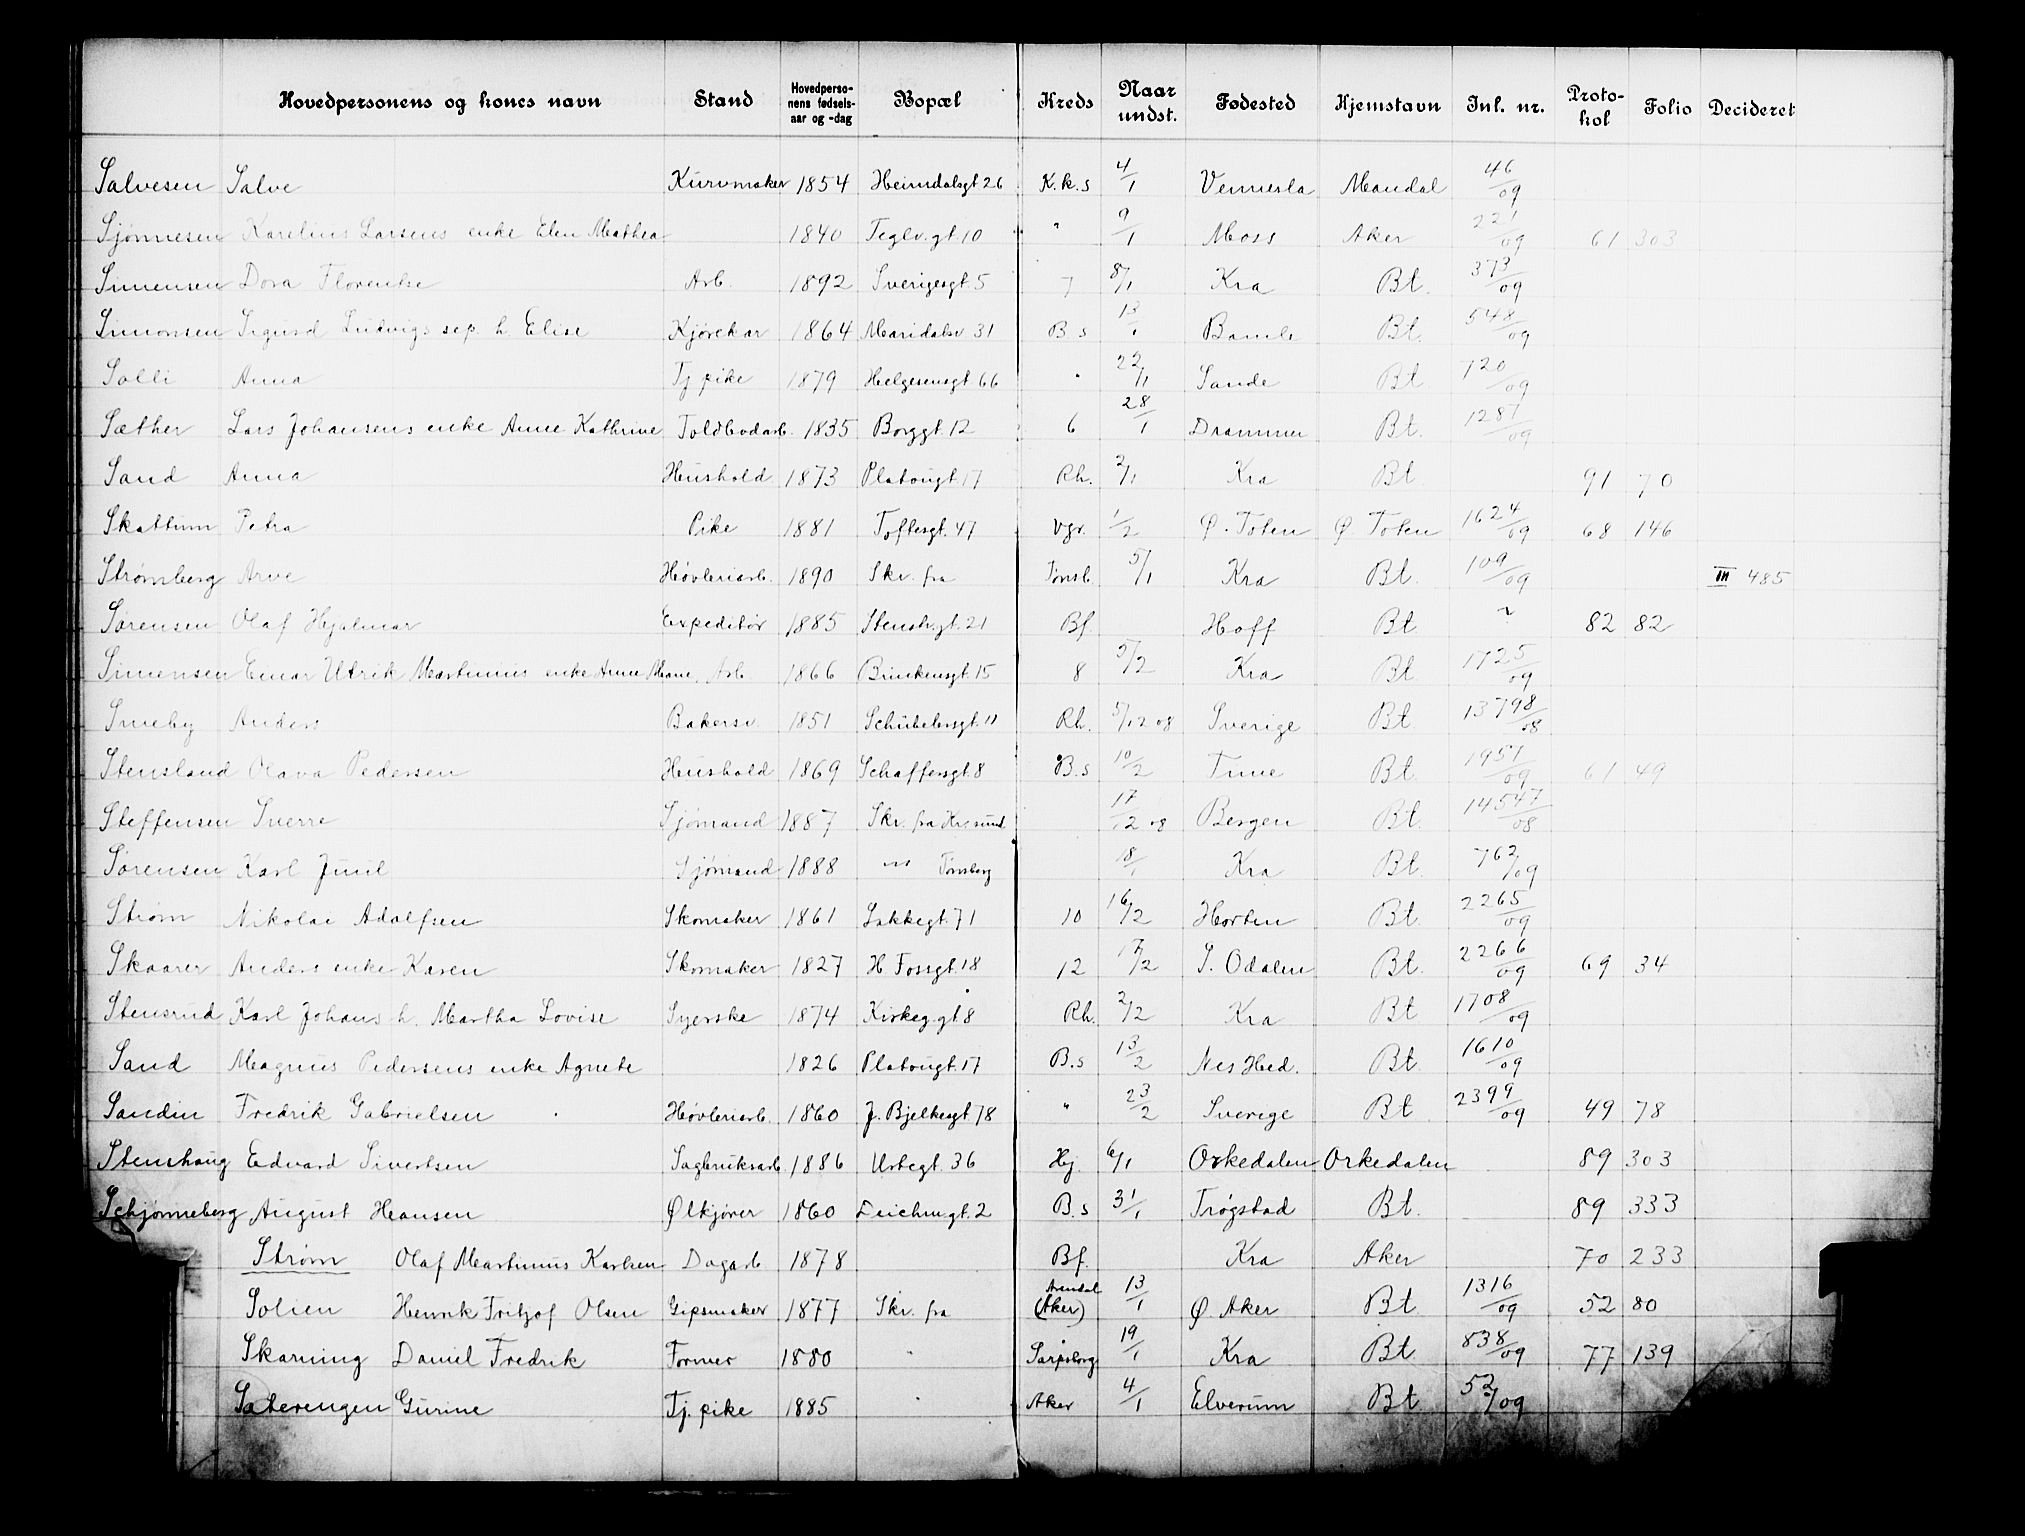 Hovedpersonens og kones navn Stand Hovedpersonens fødselsaar og -dag Bopæl Kreds Naar undst. Fødested Hjemstavn Inl. nr. Protokol Folio Decideret
Salvesen Salve Kurvmaker 1854 Heimdalsgt 26 K.k.s 4/1 Vennesla Mandal 46/09
Sjønnesen Karelius Larsens enke Elen Mathea 1840 Teglv.gt 10 " 9/1 Moss Aker 221/09 61 303
Simensen Dora Florentse Arb. 1892 Sverigesgt. 5 7 8/1 Kra Bt. 373/09
Simonsen Sigurd Ludvigs sep. h. Elise Kjørekar 1864 Maridalsv 31 B s 13/1 Bamle Bt. 548/09
Solli Anna Tj pike 1879 Helgesensgt 66 " 22/1 Sande Bt. 720/09
Sæther Lars Johansens enke Anne Kathrine Toldbodarb. 1835 Borggt. 12 6 28/1 Drammen Bt. 1287/09
Sand Anna Hushold. 1873 Platougt. 17 Rh. 2/1 Kra Bt 91 70
Skattum Petra Pike 1881 Toftesgt. 47 Vgr. 1/2 Ø. Toten Ø. Toten 1624/09 68 146
Strømberg Arve Høvleriarb. 1890 Skr. fra Tønsb. 5/1 Kra Bt. 109/09 III 485
Sørensen Olaf Hjalmar Expeditør 1885 Stensb.gt. 21 Bf. Hoff Bt. 82 82
Simensen Einar Utrik Martinius enke Anne Marie, Arb 1866 Brinkensgt. 15 8 5/2 Kra Bt. 1725/09
Smeby Anders Bakersv. 1851 Schübelersgt. 11 Rh. 5/12 08 Sverige Bt 13798/08
Stensland Olava Pedersen Hushold 1869 Schaffersgt. 8 B.s 10/2 Time Bt. 1951/09 61 49
Steffensen Sverre Sjømand 1887 Skr. fra Kr.sund 17/12 08 Bergen Bt. 14547/08
Sørensen Karl Juul Sjømand 1888 " Tønsberg 18/1 Kra Bt. 762/09
Strøm Nikolai Adolfsen Skomaker 1861 Lakkegt. 71 10 16/2 Horten Bt. 2265/09
Skaarer Anders enke Karen Skomaker 1827 H Fossgt. 18 12 17/2 S. Odalen Bt. 2266/09 69 34
Stensrud Karl Johans h. Martha Lovise Syerske 1874 Kirkeg.gt 8 Rh. 2/2 Kra Bt 1708/09
Sand Magnus Pedersens enke Agnete 1826 Platougt. 17 B.s 13/2 Nes Hed. Bt. 1610/09
Sandin Fredrik Gabrielsen Høvleriarb. 1860 J. Bjelkesgt 78 " 23/2 Sverige Bt. 2399/09 49 78
Stenshaug Edvard Sivertsen Sagbruksarb. 1886 Urtegt. 36 Hj. 6/1 Orkedalen Orkedalen 89 303
Schjønneberg August Hansen Ølkjører 1860 Deichmgt. 2 B.s 31/1 Trøgstad Bt. 89 333
Strøm Olaf Martinius Karlsen Dagarb 1878 Bf. Kra Aker 70 233
Solien Henrik Fritjof Olsen Gipsmaker 1877 Skr. fra Arendal (Aker) 13/1 Ø. Aker Bt. 1316/09 52 80
Skarning Daniel Fredrik Former 1880 " Sarpsborg 19/1 Kra Bt. 838/09 77 139
Sæterengen Gurine Tj. pike 1885 " Aker 4/1 Elverum Bt. 52/09